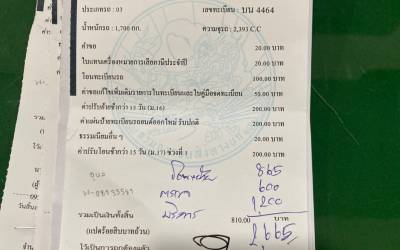 ประเภทรถ : 03 เลขทะเบียน : บน 4464
น้ำหนักรถ : 1,700 กก. ความจุรถ : 2,393 C.C
ค่าขอ 20.00 บาท
ใบแทนเครื่องหมายการเสียภาษีประจำปี 20.00 บาท
โอนทะเบียนรถ 100.00 บาท
ค่าขอแก้ไขเพิ่มเติมรายการในทะเบียนและใบคู่มือจดทะเบียน 50.00 บาท
ค่าปรับย้ายช้ากว่า 15 วัน (ม.16) 200.00 บาท
ค่าแผ่นป้ายทะเบียนรถยนต์ออกใหม่ รับปกติ 200.00 บาท
ธรรมเนียมอื่น ๆ 20.00 บาท
ค่าปรับโอนช้ากว่า 15 วัน (ม.17) ช่วงที่ 1 200.00 บาท
865
ตรวจ 600
บริการ 1,200
รวมทะเป็นเงินทั้งสิ้น 810.00 บาท
(แปดร้อยสิบบาทถ้วน)
2,665
ไว้เป็นการถูกต้องแล้ว